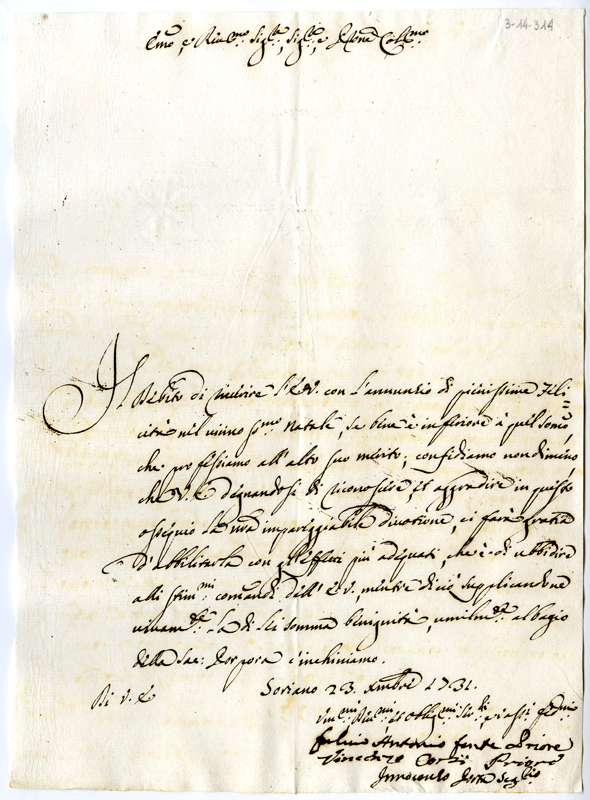 3-14-314
Emo, e Rmo Sigre, Sigre, e Pne Colmo
Il debito di riverire l'E.V. con l'annunzio di pienissime Feli=
cità nel vicino Smo Natale, se bene è inferiore à quel sommo,
che professiamo all'alto suo merito; confidiamo nondimeno
che V.E. degnandosi di riconoscere, et aggradire in questo
ossequio la nra impareggiabile divotione, ci farà gratia
d'abbilitarla con gl'effetti più adequati, che è di ubbidire
alli stimmi comandi dell'E.V., mentre di ciò supplicandone
vivamte la di lei somma benignità, umilmte al bagio
della Sac: Porpora c'inchiniamo.
Di V.E.
Soriano 23. Xmbre 1731.
Ummi Devmi et Obblmi Serri
Antonio fante Priore
Vincenzo Corsi Priore
Innocenzo Segrio